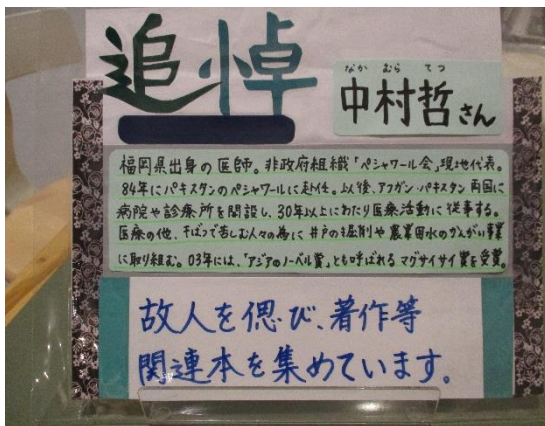 追悼
なか むら てつ
中村哲さん
福岡県出身の医師。非政府組織「ペシャワール会」現地代表。
84年にパキスタンのペシャワールに赴任。以後、アフガン・パキスタン両国に
病院や診療所を開設し、30年以上にわたり医療活動に従事する。
医療の他、干ばつで苦しむ人々の為に井戸の掘削や農業用水のかんがい事業
に取り組む。03年には、「アジアのノーベル賞」とも呼ばれるマグサイサイ賞を受賞。
故人を偲び、著作等
関連本を集めています。